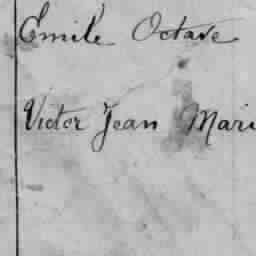 Emile Octave
Victor Jean Mari